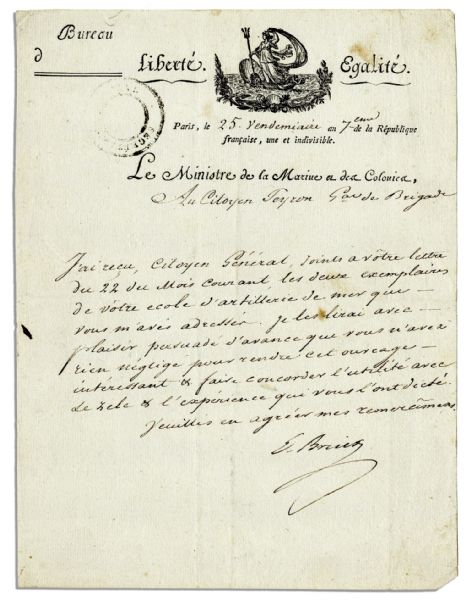 Bureau
d
Liberté. Egalité.
Paris, le 25 Vendemiaire au 7eme de la République
française, une et indivisible.
Le Ministre de la Marine et des Colonies,
Au Citoyen Teyron Gal de Brigade
J'ai reçu, Citoyen Général, joints a vôtre lettre
du 22 du Mois courant, les deux exemplaires
de vôtre ecole d'artillerie de mer que
vous m'avés adressés. je les lirai avec
plaisir persuadé d'avance que vous n'avez
rien négligé pour rendre cet ouvrage
interéssant & faire concorder l'utilité avec
le Zele & l'experience qui vous l'ont dicté.
Veuilles en agréer mes remercîmens.
E. Bruix